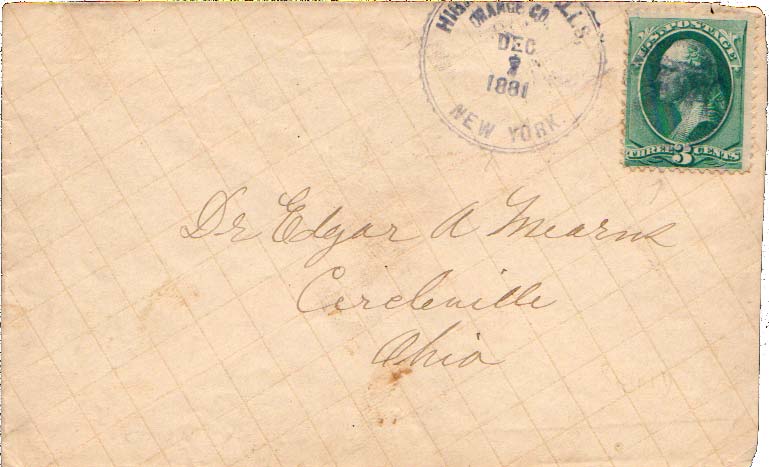 ORANGE CO.
DEC
1881
NEW YORK.
U.S. POSTAGE
THREE 3 CENTS
Dr Edgar A Mearns
Circleville
Ohio